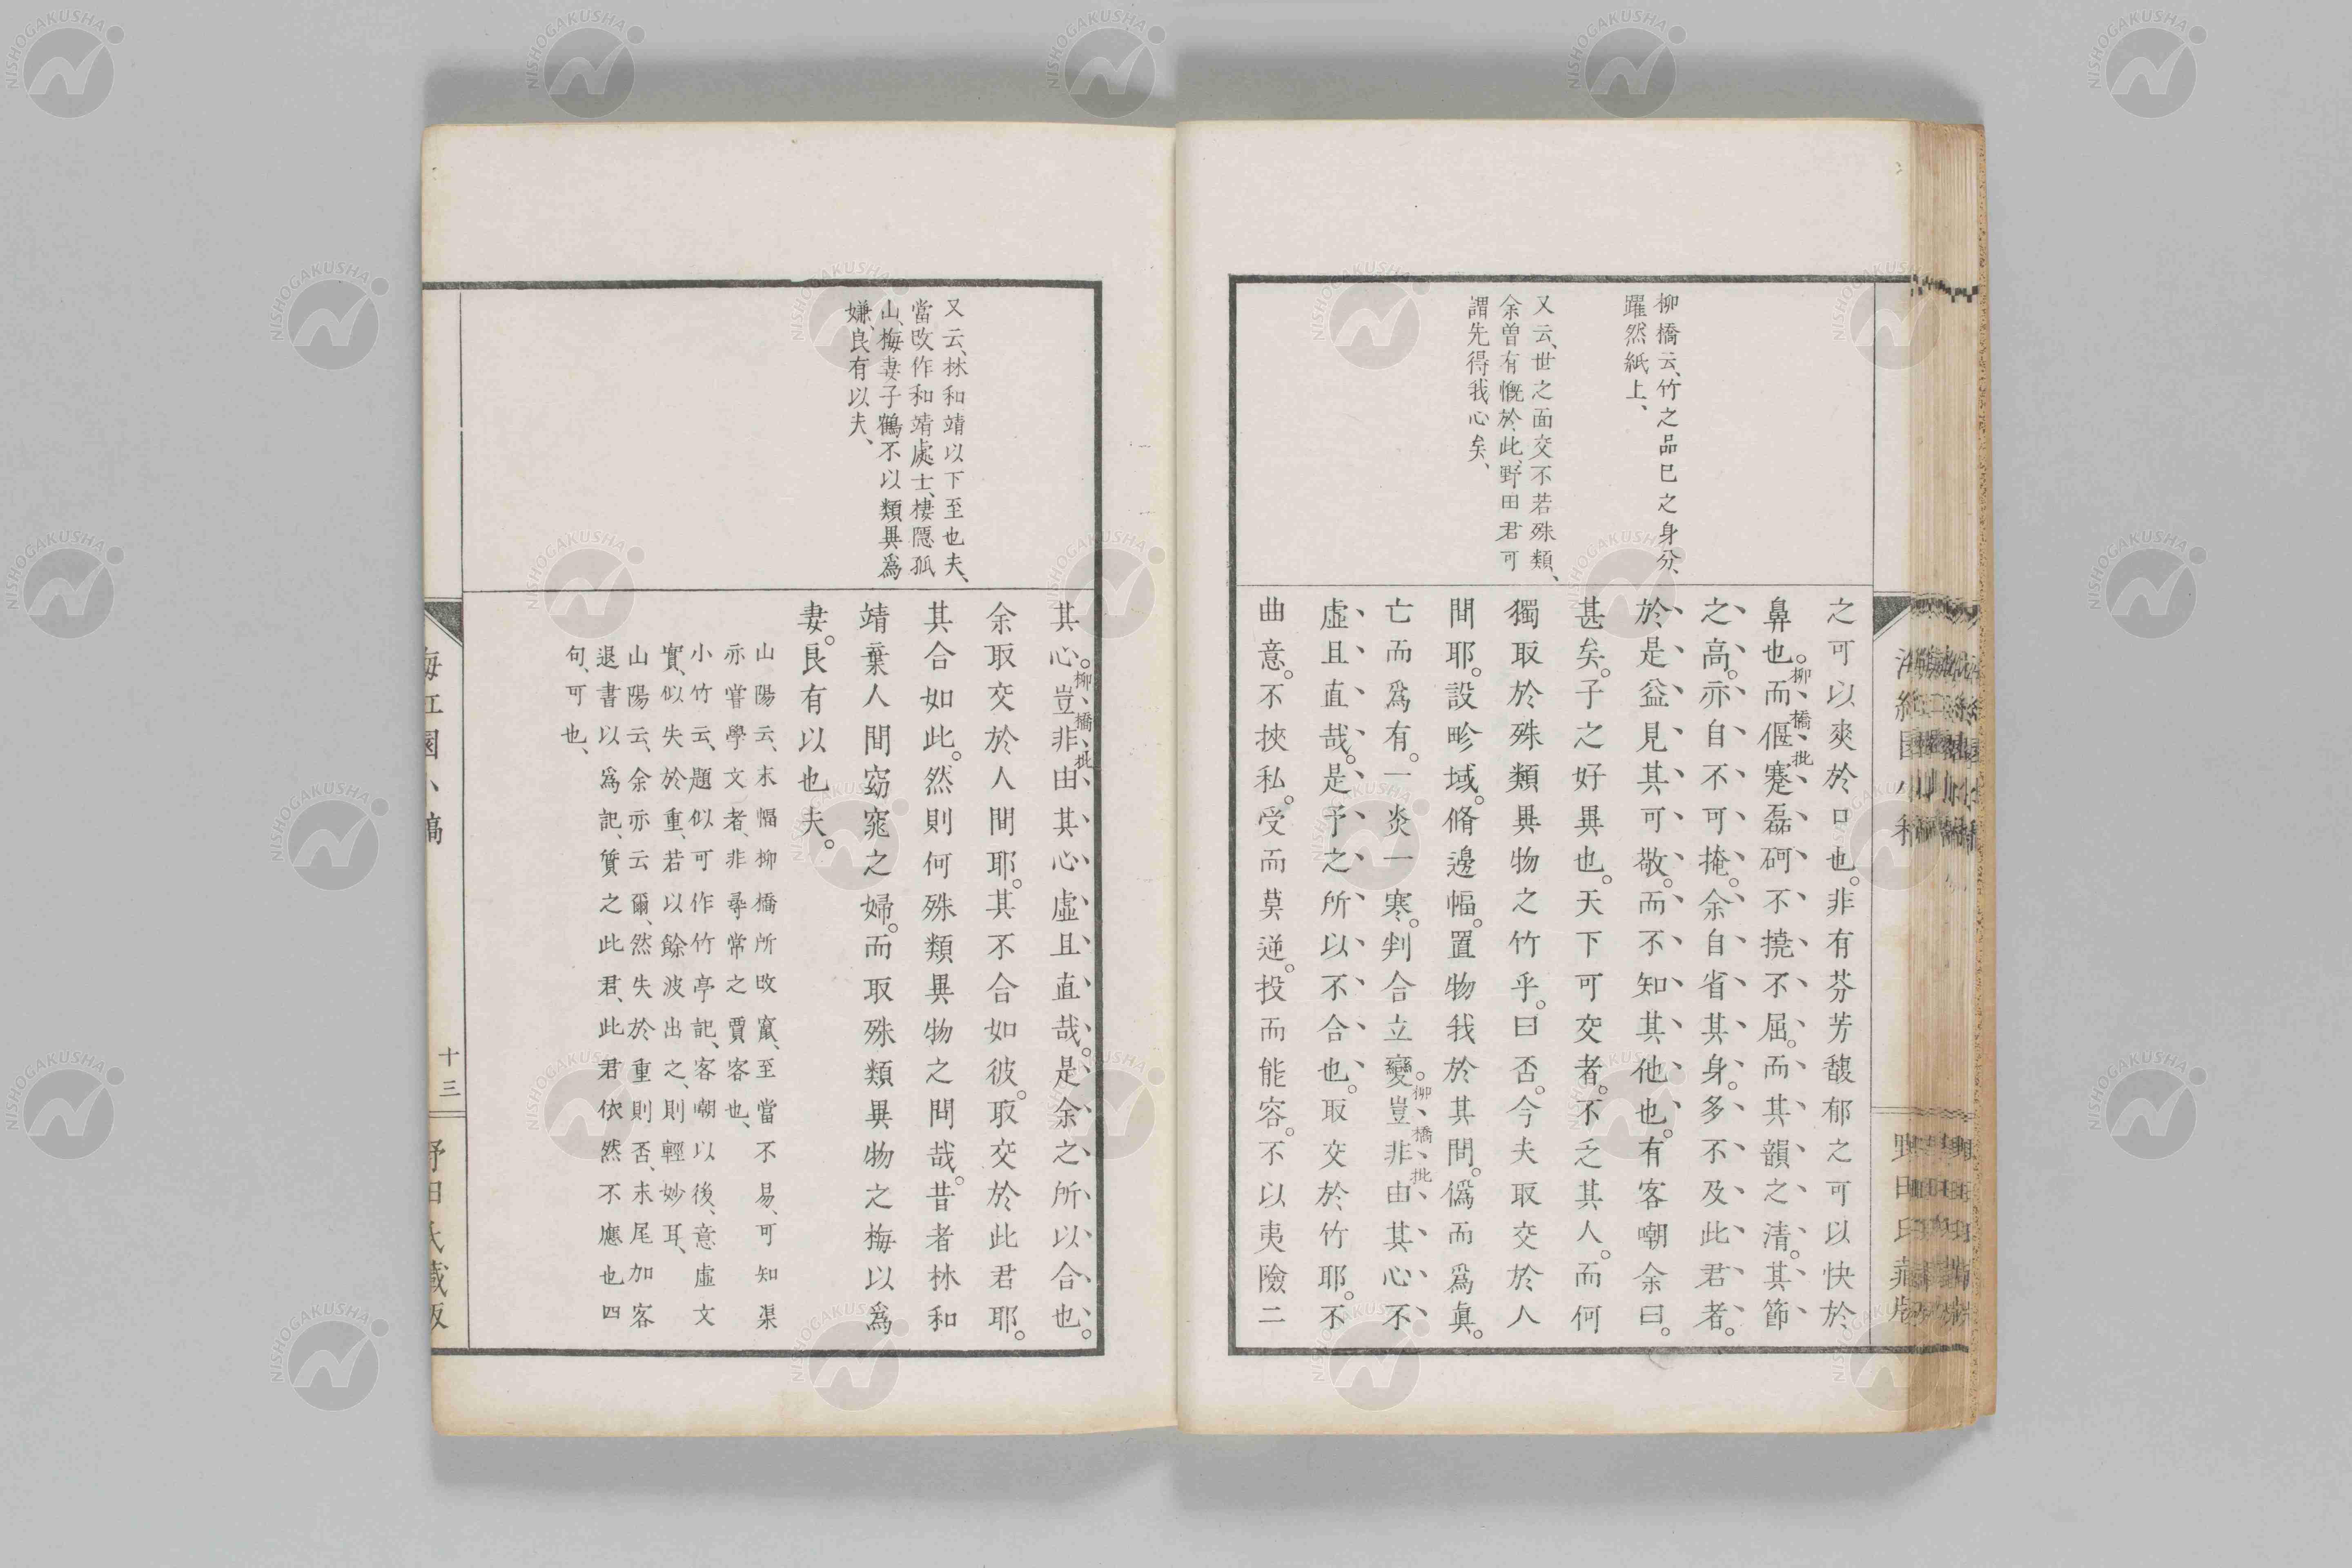 柳橋云、竹之品巳之身分、
躍然紙上、
又云、世之面交不若殊類、
余曽有慨於此、野田君可
謂先得我心矣、
之可以爽於口也。非有芬芳馥郁之可以快於
鼻也。而偃蹇磊砢不撓不屈。而其韻之清。其節
柳橋批
之高。亦自不可掩。余自省其身。多不及此君者。
於是益見其可敬。而不知其他也。有客嘲余曰。
甚矣。子之好異也。天下可交者。不乏其人。而何
獨取於殊類異物之竹乎。曰否。今夫取交於人
間耶。設畛域。脩邊幅。置物我於其間。僞而爲眞。
亡而爲有。一炎一寒。判合立變。豈非由其心不
柳橋批
虛且直哉。是予之所以不合也。取交於竹耶。不
曲意。不挾私。受而莫逆。投而能容。不以夷險二
又云、林和靖以下至也夫、
當改作和靖處士、棲隱孤
山、梅妻子鶴、不以類異爲
嫌、良有以夫、
其心。豈非由其心虛且直哉。是余之所以合也。
柳橋批
余取交於人間耶。其不合如彼。取交於此君耶。
其合如此。然則何殊類異物之問哉。昔者林和
靖棄人間窈窕之婦。而取殊類異物之梅以爲
妻。良有以也夫。
山陽云、末幅柳橋所改竄、至當不易、可知渠
亦嘗學文者、非尋常之賈客也、
小竹云、題似可作竹亭記、客嘲以後、意虛文
實、似失於重、若以餘波出之、則輕妙耳、
山陽云、余亦云爾、然失於重則否、末尾加客
退書以爲記、質之此君、此君依然不應也四
句、可也、
海紅園小稿
十三
野田氏藏版